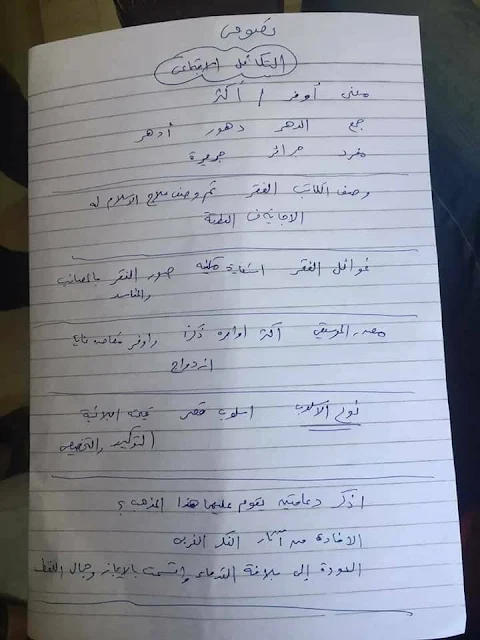 نصوص
التكافل الاجتماعي
معنى أوفر / أكثر
جمع الدهر دهور أدهر
مفرد جرائر جريرة
وصف الكاتب الفقر ثم وصف علاج الإسلام له
الإجابة في القطعة
غوائل الفقر استعارة مكنية صور الفقر بالمصائب
والمفاسد
مصدر الموسيقى أكثر أوامره ذكرا وأوفر مقاصده
ازدواج
نوع الأسلوب أسلوب قصر قيمته البلاغية
التوكيد والتخصيص
اذكر دعامتين يقوم عليهما هذا المذهب؟
الإفادة من آثار الفكر الغربى
العودة إلى بلاغة القدماء واتسمت بالإيجاز وجمال اللفظ